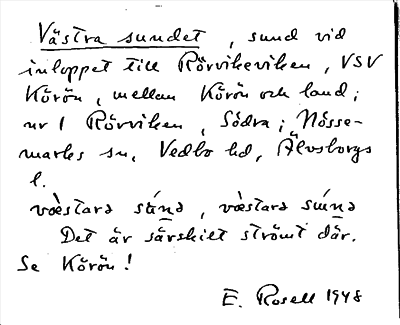 Västra sundet, sund vid
inloppet till Rörvikeviken, VSV
Körön, mellan Körön och land;
nr 1 Rörviken, Södra; Nösse-
marks sn, Vedbo hd, Älvsborgs
l.
væ̀stara súnd, væstara súnd
Det är särskilt strömt där.
Se Körön!
E. Rosell 1948